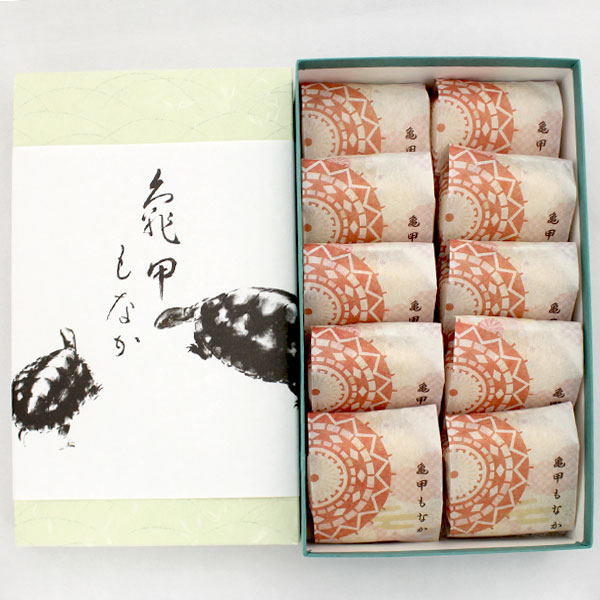 龜甲
もなか
亀甲
亀甲
亀甲
亀甲
亀甲
亀
亀甲
亀甲
亀甲もなか
亀甲もなか